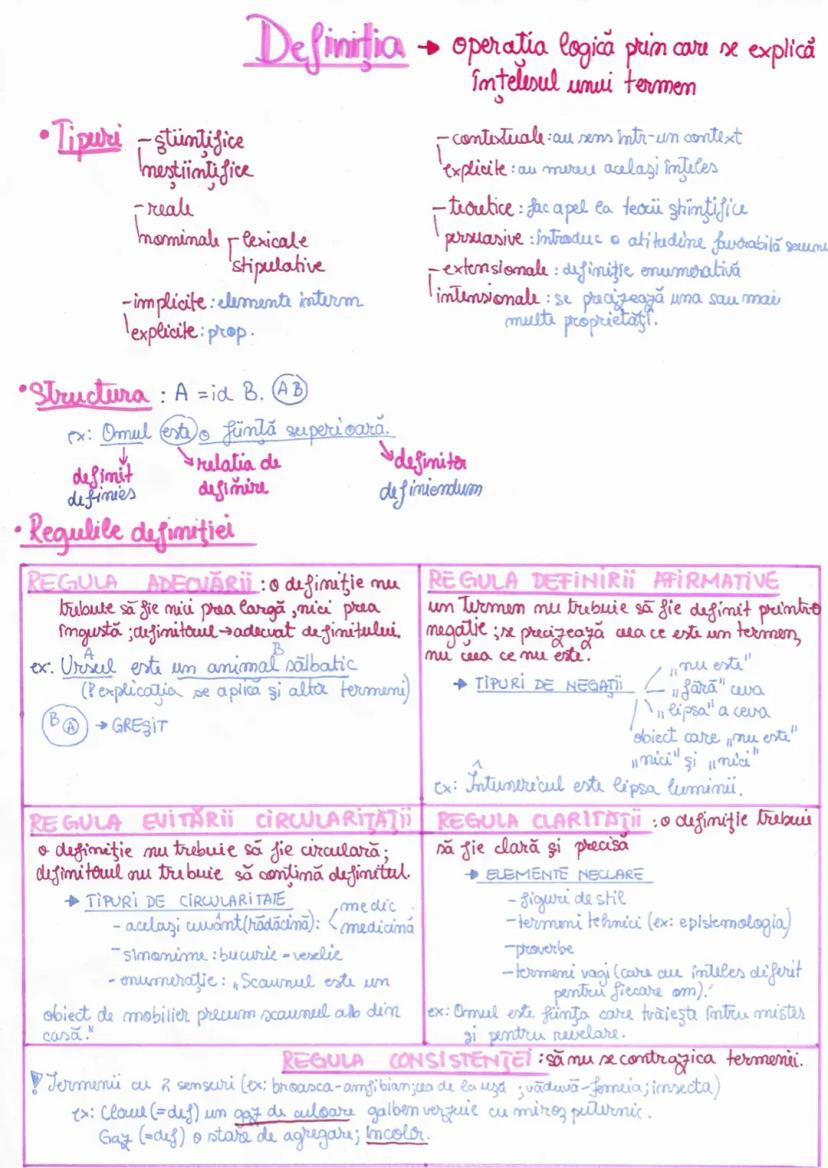 Definiția → operația logică prin care se explică
înțelesul unui termen
• Tipuri
- științifice
neștiințifice
- reale
nominale - lexicale
stipulative
- implicite: elemente interm
explicite: prop.
- contextuale: au sens într-un context
explicite: au mereu același înțeles
- teoretice: fac apel la teorii științifice
persuasive: introduc o atitudine favorabilă
- extensionale: definiție enumerativă
intensionale: se precizează una sau mai
multe proprietăți.
• Structura: A =id B. (AB)
ex: Omul este o ființă superioară.
definit
definies
relatia de
definire
definitor
definiendum
• Regulile definiției
REGULA ADECVĂRII: o definiție nu
trebuie să fie nici prea largă, nici prea
îngustă; definitorul → adecvat definitului.
A B
ex: Ursul este un animal sălbatic
(explicația se aplică și altor termeni)
B A → GREȘIT
REGULA DEFINIRII AFIRMATIVE
un termen nu trebuie să fie definit printr-o
negație; se precizează ceea ce este un termen,
nu ceea ce nu este.
→ TIPURI DE NEGAȚII
„nu este"
„fără" ceva
„lipsa" a ceva
obiect care „nu este"
„nici" și „nici"
ex: Întunericul este lipsa luminii.
REGULA EVITĂRII CIRCULARITĂȚII
o definiție nu trebuie să fie circulară;
definitorul nu trebuie să conțină definitul.
→ TIPURI DE CIRCULARITATE
- același cuvânt (rădăcină): medic
medicină
- sinonime: bucurie - veselie
- enumerație: „Scaunul este un
obiect de mobilier precum scaunul alb din
casă."
REGULA CLARITĂȚII: o definiție trebuie
să fie clară și precisă
→ ELEMENTE NECLARE
- figuri de stil
- termeni tehnici (ex: epistemologia)
- proverbe
- termeni vagi (care au înteles diferit
pentru fiecare om).
ex: Omul este ființa care trăiește întru mister
și pentru revelare.
REGULA CONSISTENȚEI: să nu se contrazica termenii.
! Termenii cu 2 sensuri (ex: broasca-amfibian; cea de la ușă; văduvă-femeia; insecta)
ex: Clorul (=def) un gaz de culoare galben verzuie cu miros puternic.
Gaz (=def) o stare de agregare; incolor.